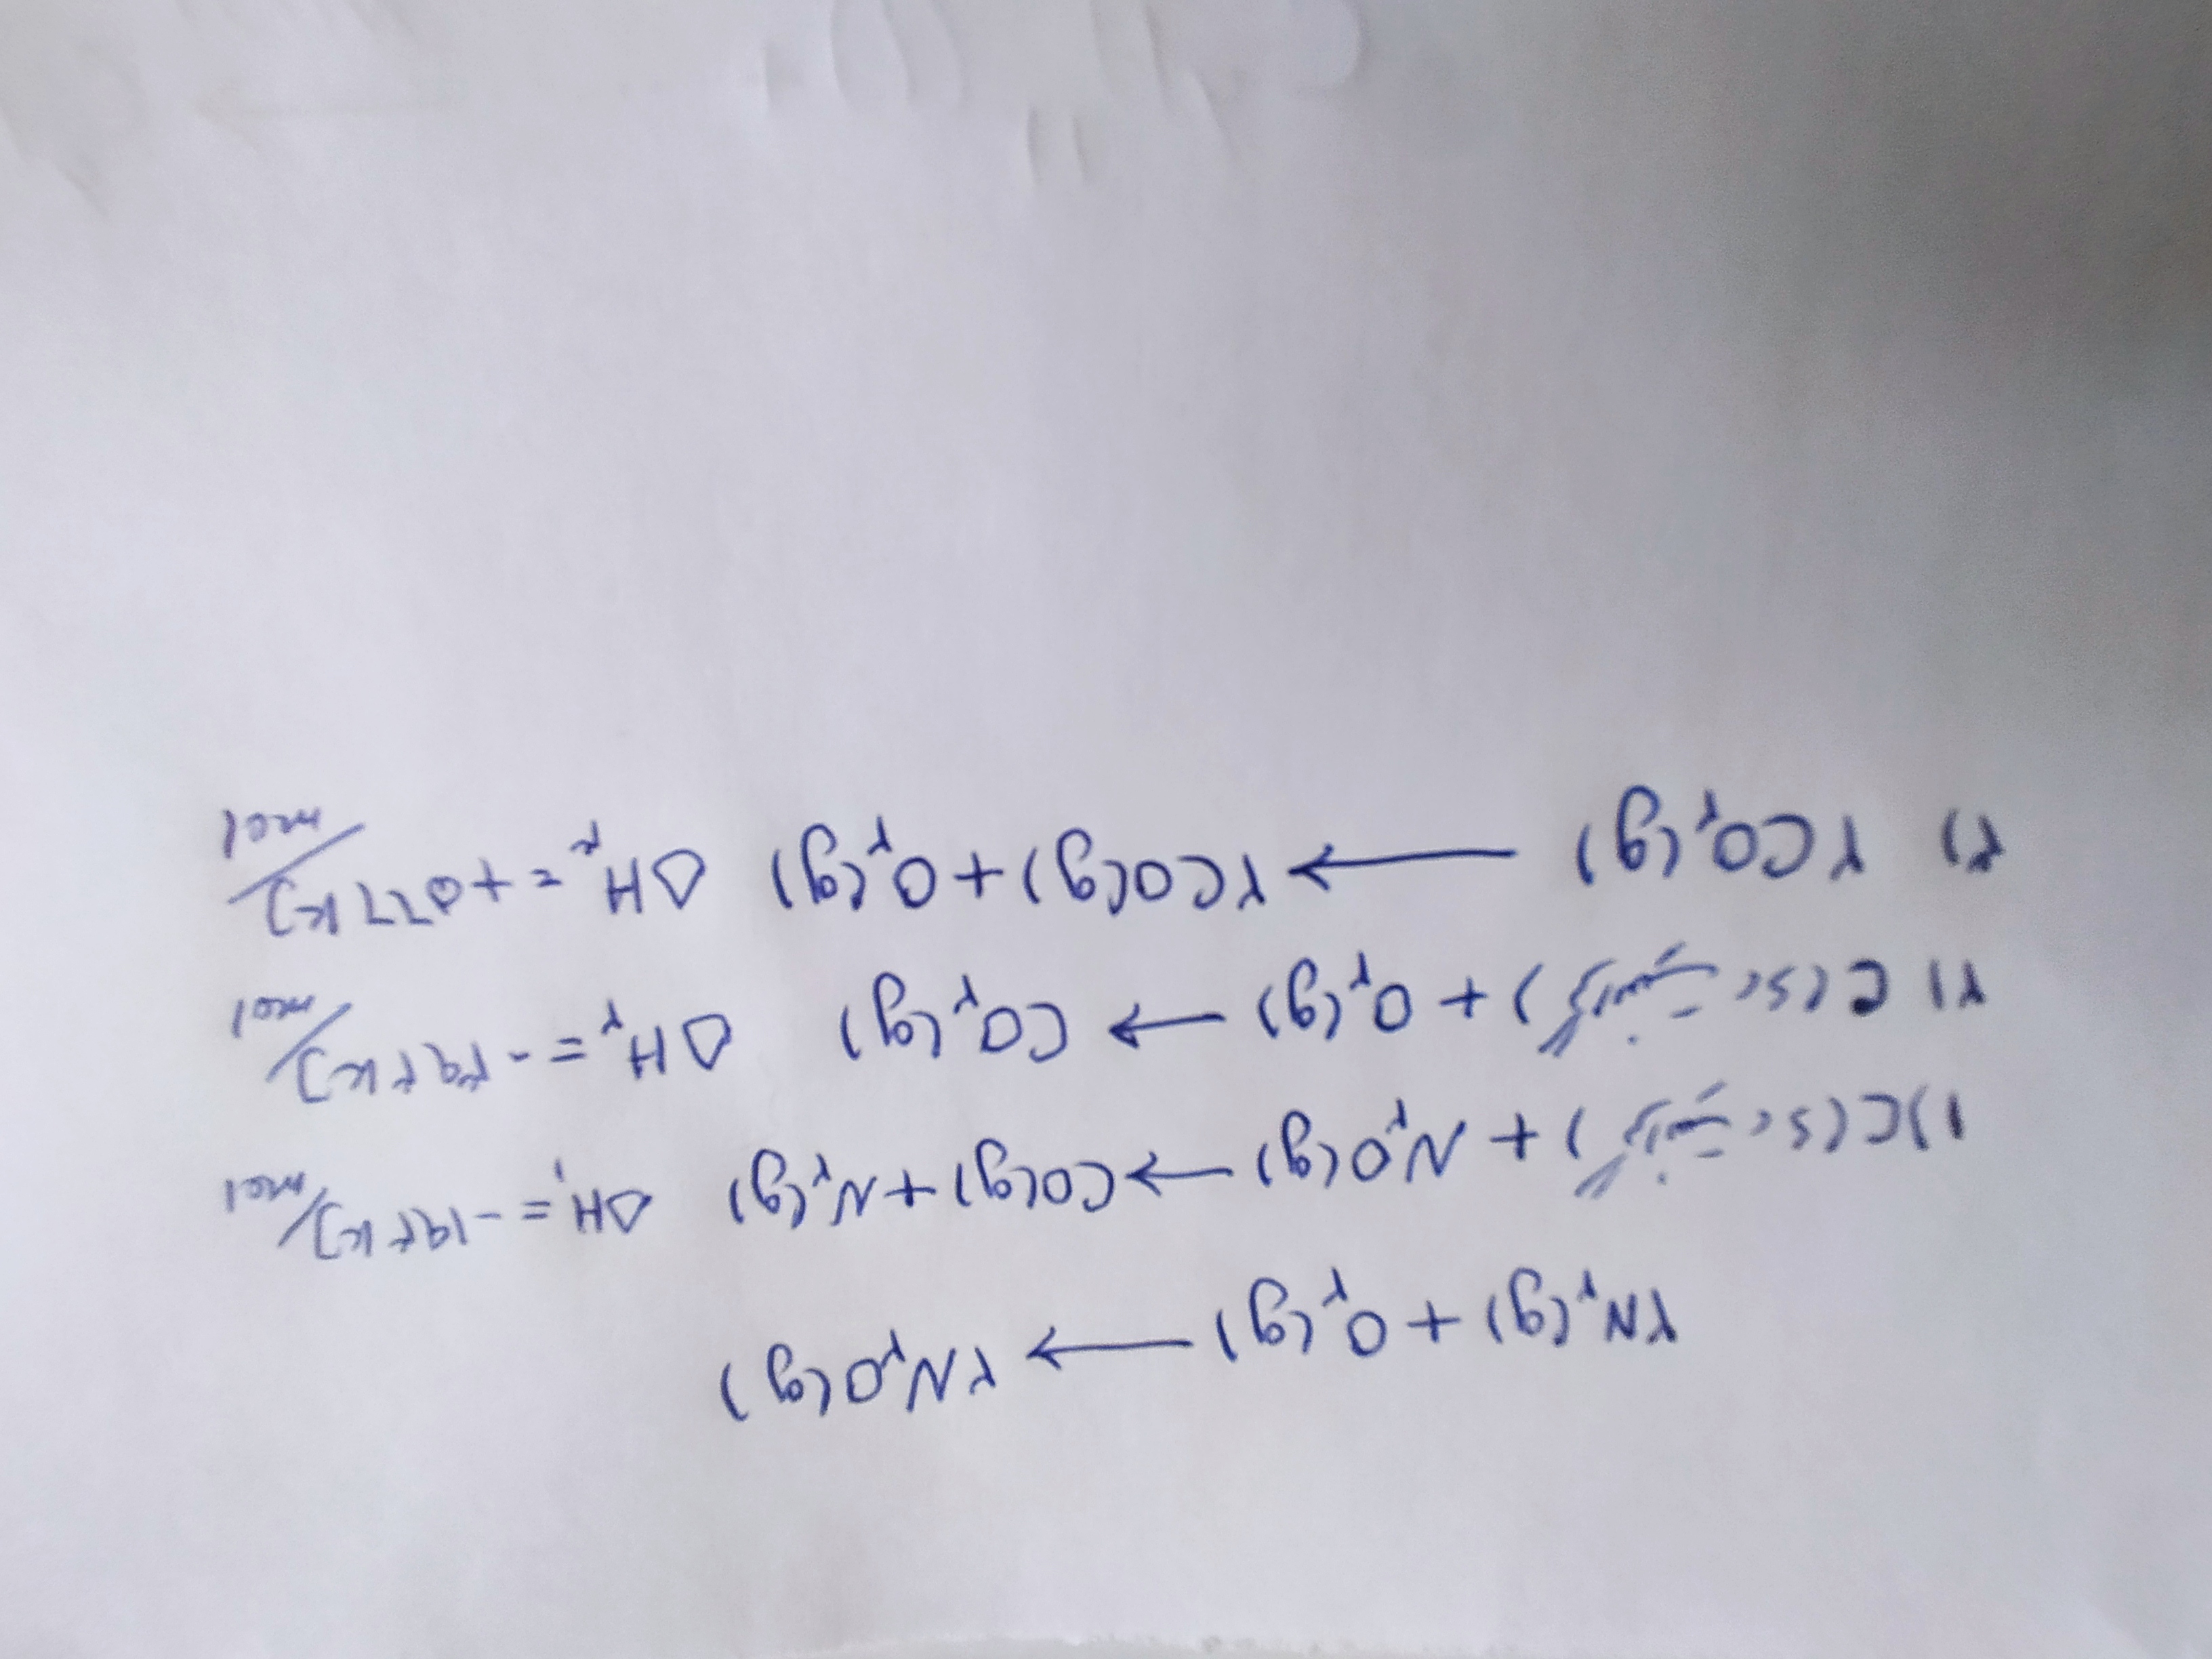 ۲N₂(g) + O₂(g) → ۲N₂O(g)
۱) C(s، گرافیت) + N₂O(g) → CO(g) + N₂(g) ΔH₁ = -۱۹۳ kJ/mol
۲) C(s، گرافیت) + O₂(g) → CO₂(g) ΔH₂ = -۳۹۳ kJ/mol
۳) ۲CO₂(g) → ۲CO(g) + O₂(g) ΔH₃ = +۵۶۶ kJ/mol